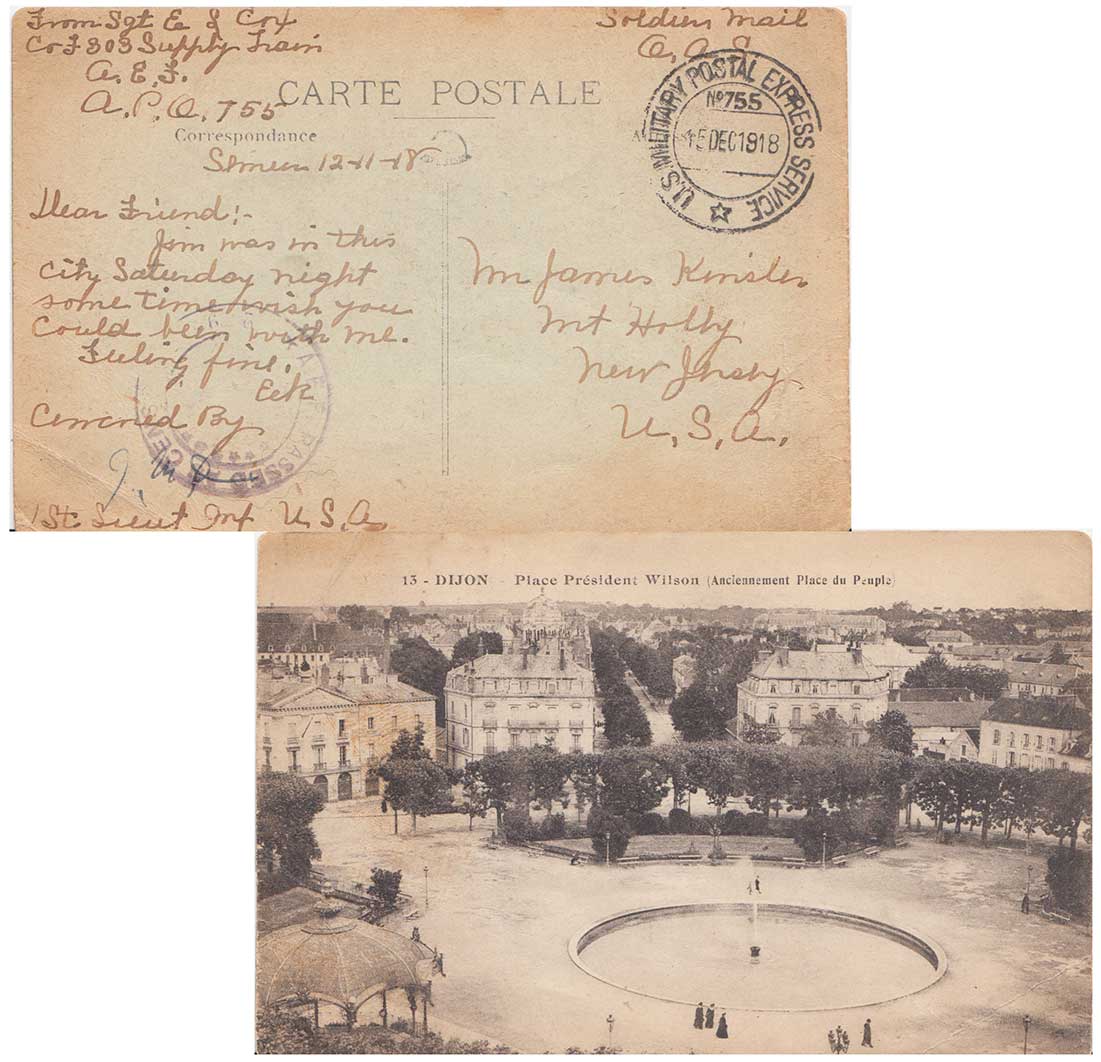 From Sgt E J Cox
Co F 303 Supply Train
A.E.F.
A.P.O. 755
Soldiers Mail
O.A.S.
CARTE POSTALE
Correspondance
U.S. MILITARY POSTAL EXPRESS SERVICE
No 755
15 DEC 1918
12-11-18
Dear Friend:-
Jim was in this
City Saturday night
some time wish you
Could been with me.
Feeling fine.
Eck
Cencored By
1st Lieut Inf U.S.A.
A.E.F. PASSED CENSOR
Mr James Kinsler
Mt Holly
New Jersy
U.S.A.
13 - DIJON - Place Président Wilson (Anciennement Place du Peuple)